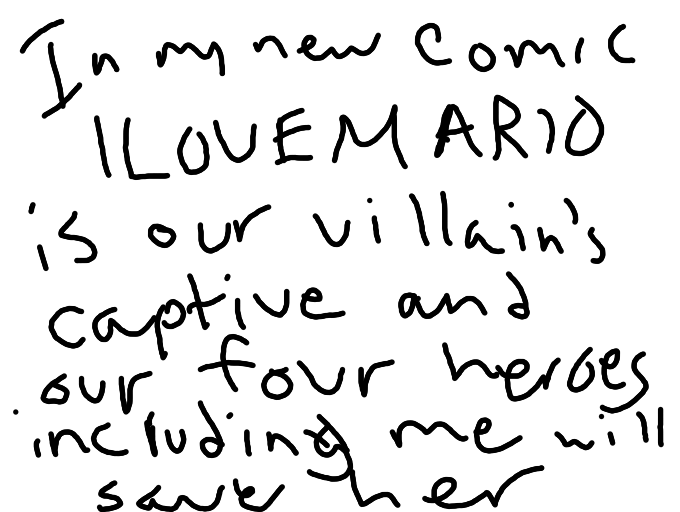 In my new comic
ILOVEMARIO
is our villain's
captive and
our four heroes
including me will
save her